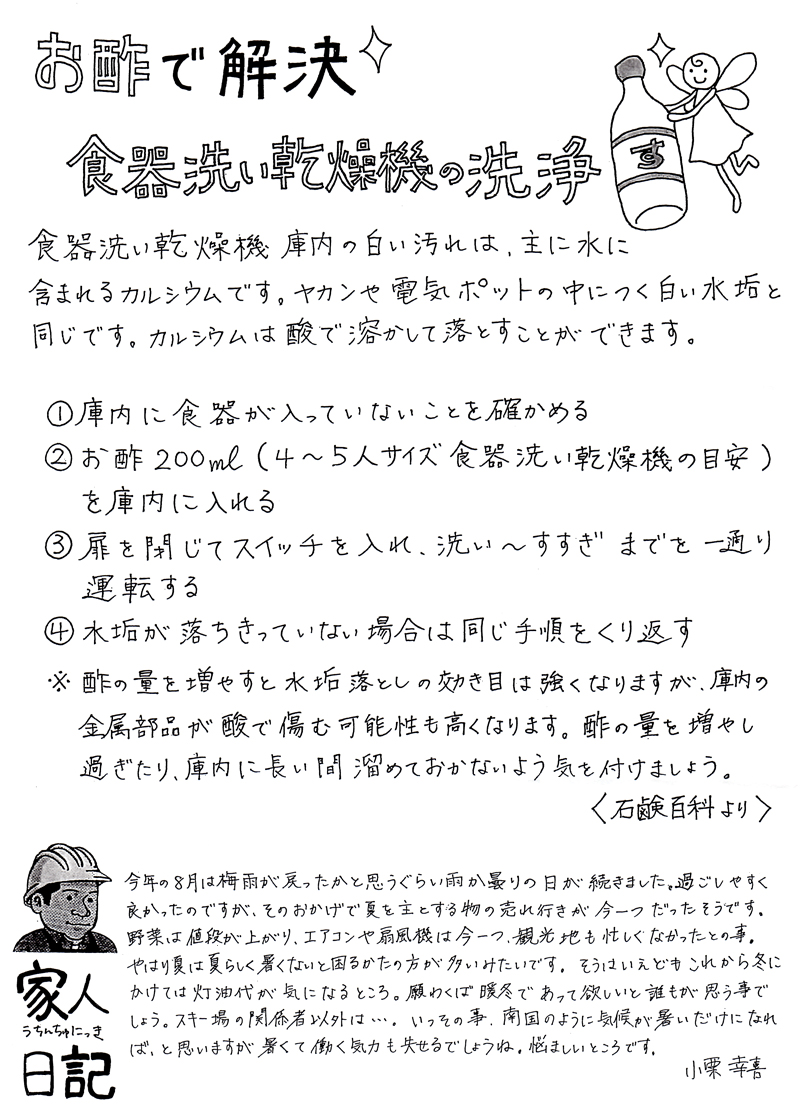 お酢で解決
食器洗い乾燥機の洗浄
す
食器洗い乾燥機 庫内の白い汚れは、主に水に
含まれるカルシウムです。ヤカンや電気ポットの中につく白い水垢と
同じです。カルシウムは酸で溶かして落とすことができます。
①庫内に食器が入っていないことを確かめる
②お酢200ml(4〜5人サイズ食器洗い乾燥機の目安)
を庫内に入れる
③扉を閉じてスイッチを入れ、洗い〜すすぎまでを一通り
運転する
④水垢が落ちきっていない場合は同じ手順をくり返す
※酢の量を増やすと水垢落としの効き目は強くなりますが、庫内の
金属部品が酸で傷む可能性も高くなります。酢の量を増やし
過ぎたり、庫内に長い間溜めておかないよう気を付けましょう。
〈石鹸百科より〉
今年の8月は梅雨が戻ったかと思うぐらい雨か曇りの日が続きました。過ごしやすく
良かったのですが、そのおかげで夏を主とする物の売れ行きが今一つだったそうです。
野菜は値段が上がり、エアコンや扇風機は今一つ、観光地も忙しくなかったとの事。
やはり夏は夏らしく暑くないと困るかたの方が多いみたいです。そうはいえどもこれから冬に
かけては灯油代が気になるところ。願わくば暖冬であって欲しいと誰もが思う事で
しょう。スキー場の関係者以外は…。いっその事、南国のように気候が暑いだけになれ
ば、と思いますが暑くて働く気力も失せるでしょうね。悩ましいところです。
小栗 幸喜
家人
うちんちゅにっき
日記